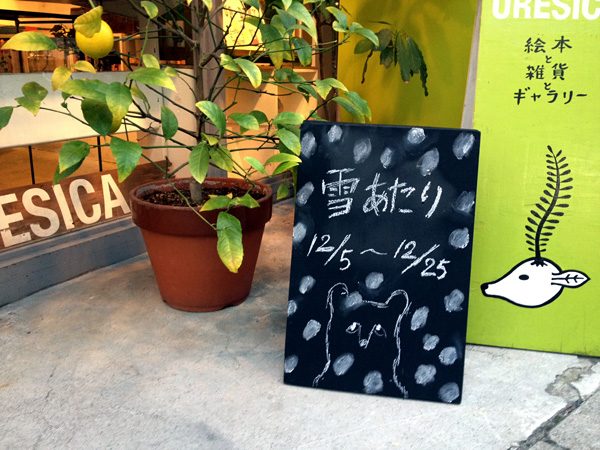 URESIC
絵本
と
雑貨
と
ギャラリー
ESICA
雪あたり
12/5〜12/25